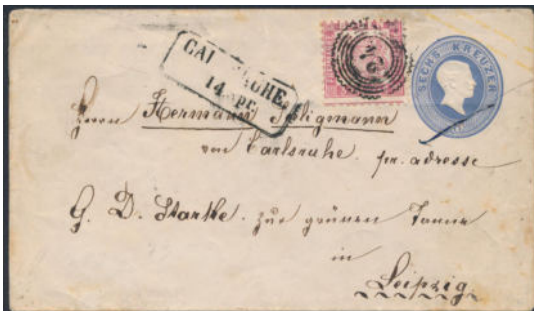 SECHS KREUZER
14 Apr.
Herrn Hermann Seligmann
von Carlsruhe. pr. adresse
G. D. Starke. zur grünen Tanne
in
Leipzig